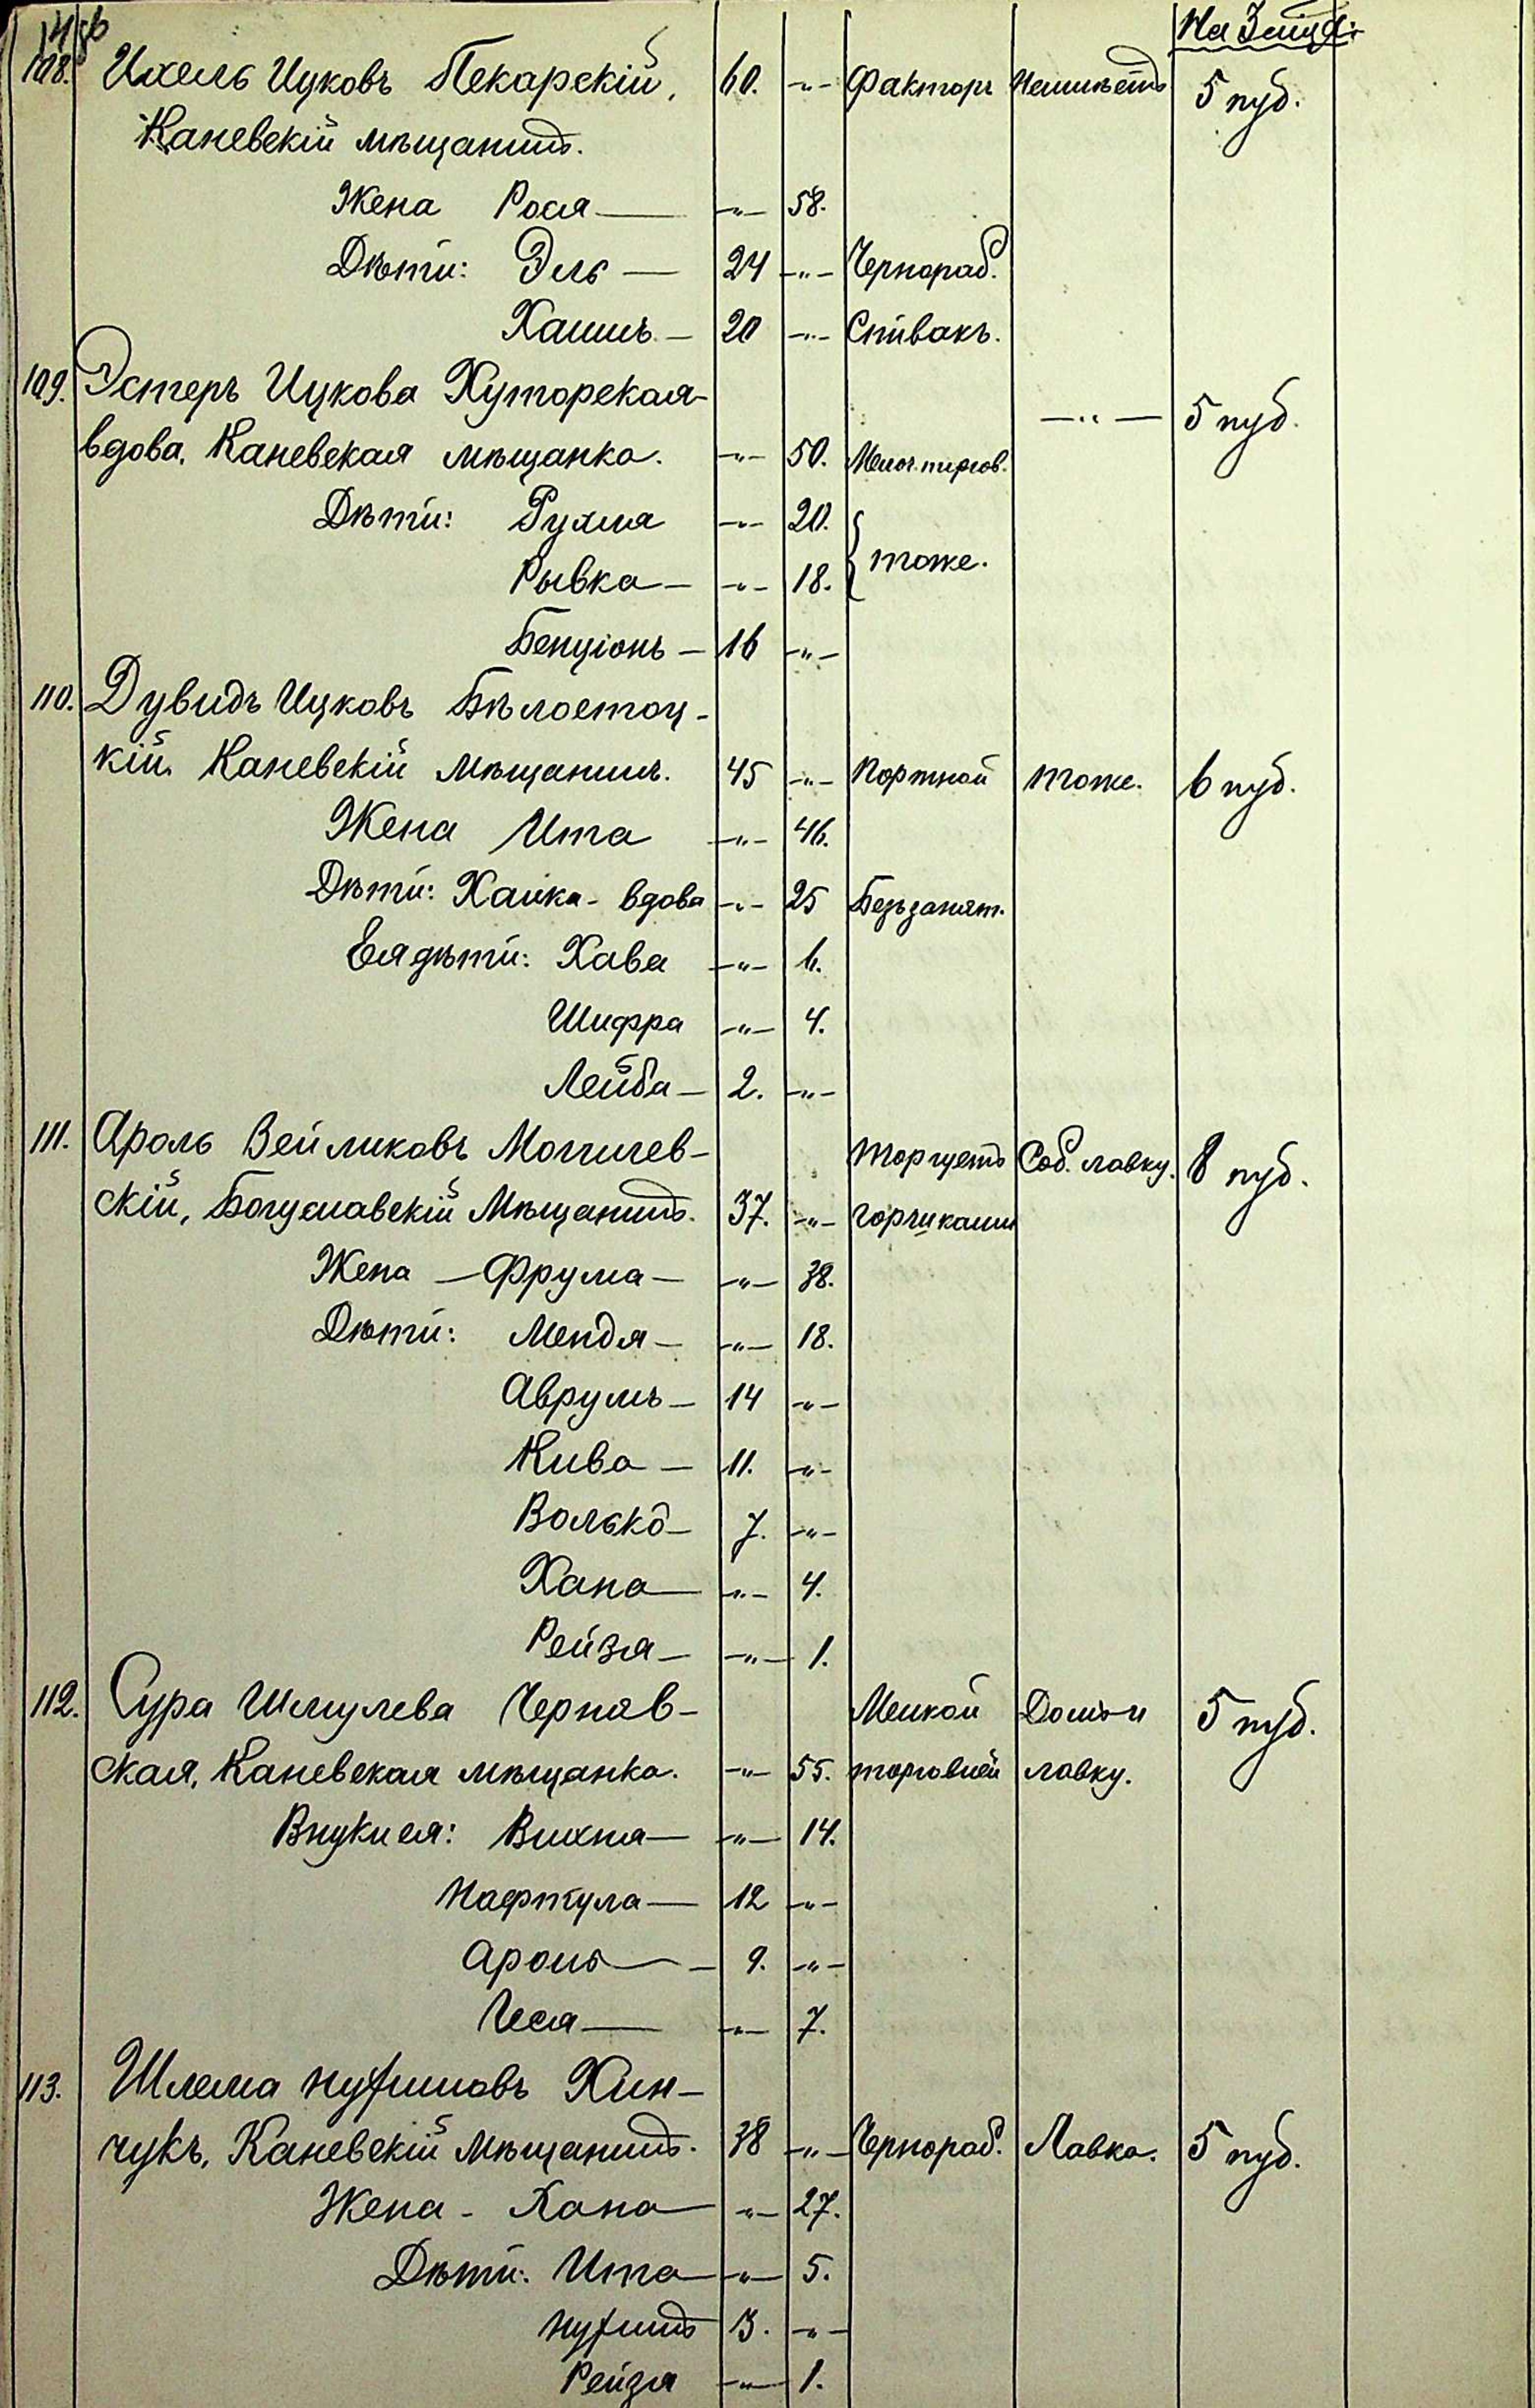 108. Ихель Ицковъ Пекарскій, 60. -"- Факторъ Неимѣетъ 5 пуд.
Каневскій мѣщанинъ.
Жена Рося — -"- 58.
Дѣти: Эль — 24 -"- Чернораб.
Хаимъ — 20 -"- Спивакъ.
109. Эстеръ Ицкова Хуторская - -"- 5 пуд.
вдова, Каневская мѣщанка. -"- 50. Мелоч. торгов.
Дѣти: Рухля -"- 20. } тоже.
Рывка — -"- 18.
Бенціонъ — 16 -"-
110. Дувидъ Ицковъ Бѣлостоц-
кій Каневскій мѣщанинъ. 45 -"- Портной тоже. 6 пуд.
Жена Ита -"- 46.
Дѣти: Хайка - вдова -"- 25 Безъ занят.
Ея дѣти: Хава -"- 6.
Шифра -"- 4.
Лейба — 2. -"-
111. Аронъ Вейликовъ Могилев- Торгуетъ Соб. лавку. 8 пуд.
скій, Богуславскій Мѣщанинъ. 37. -"- горшками
Жена — Фрума — -"- 38.
Дѣти: Мендя — -"- 18.
Аврумъ — 14 -"-
Кива — 11. -"-
Волько — 7. -"-
Хана — -"- 4.
Рейзя — -"- 1.
112. Сура Шмулева Черняв- Мелкой Домъ и 5 пуд.
ская, Каневская мѣщанка. -"- 55. торговлей лавку.
Внуки ея: Вихна — -"- 14.
Нафтула — 12 -"-
Аронъ — 9. -"-
Чеся — -"- 7.
113. Шлема Нухимовъ Хин-
чукъ, Каневскій Мѣщанинъ. 38 -"- Чернораб. Лавка. 5 пуд.
Жена - Хана -"- 27.
Дѣти: Ита -"- 5.
Нухимъ 3. -"-
Рейзя -"- 1.